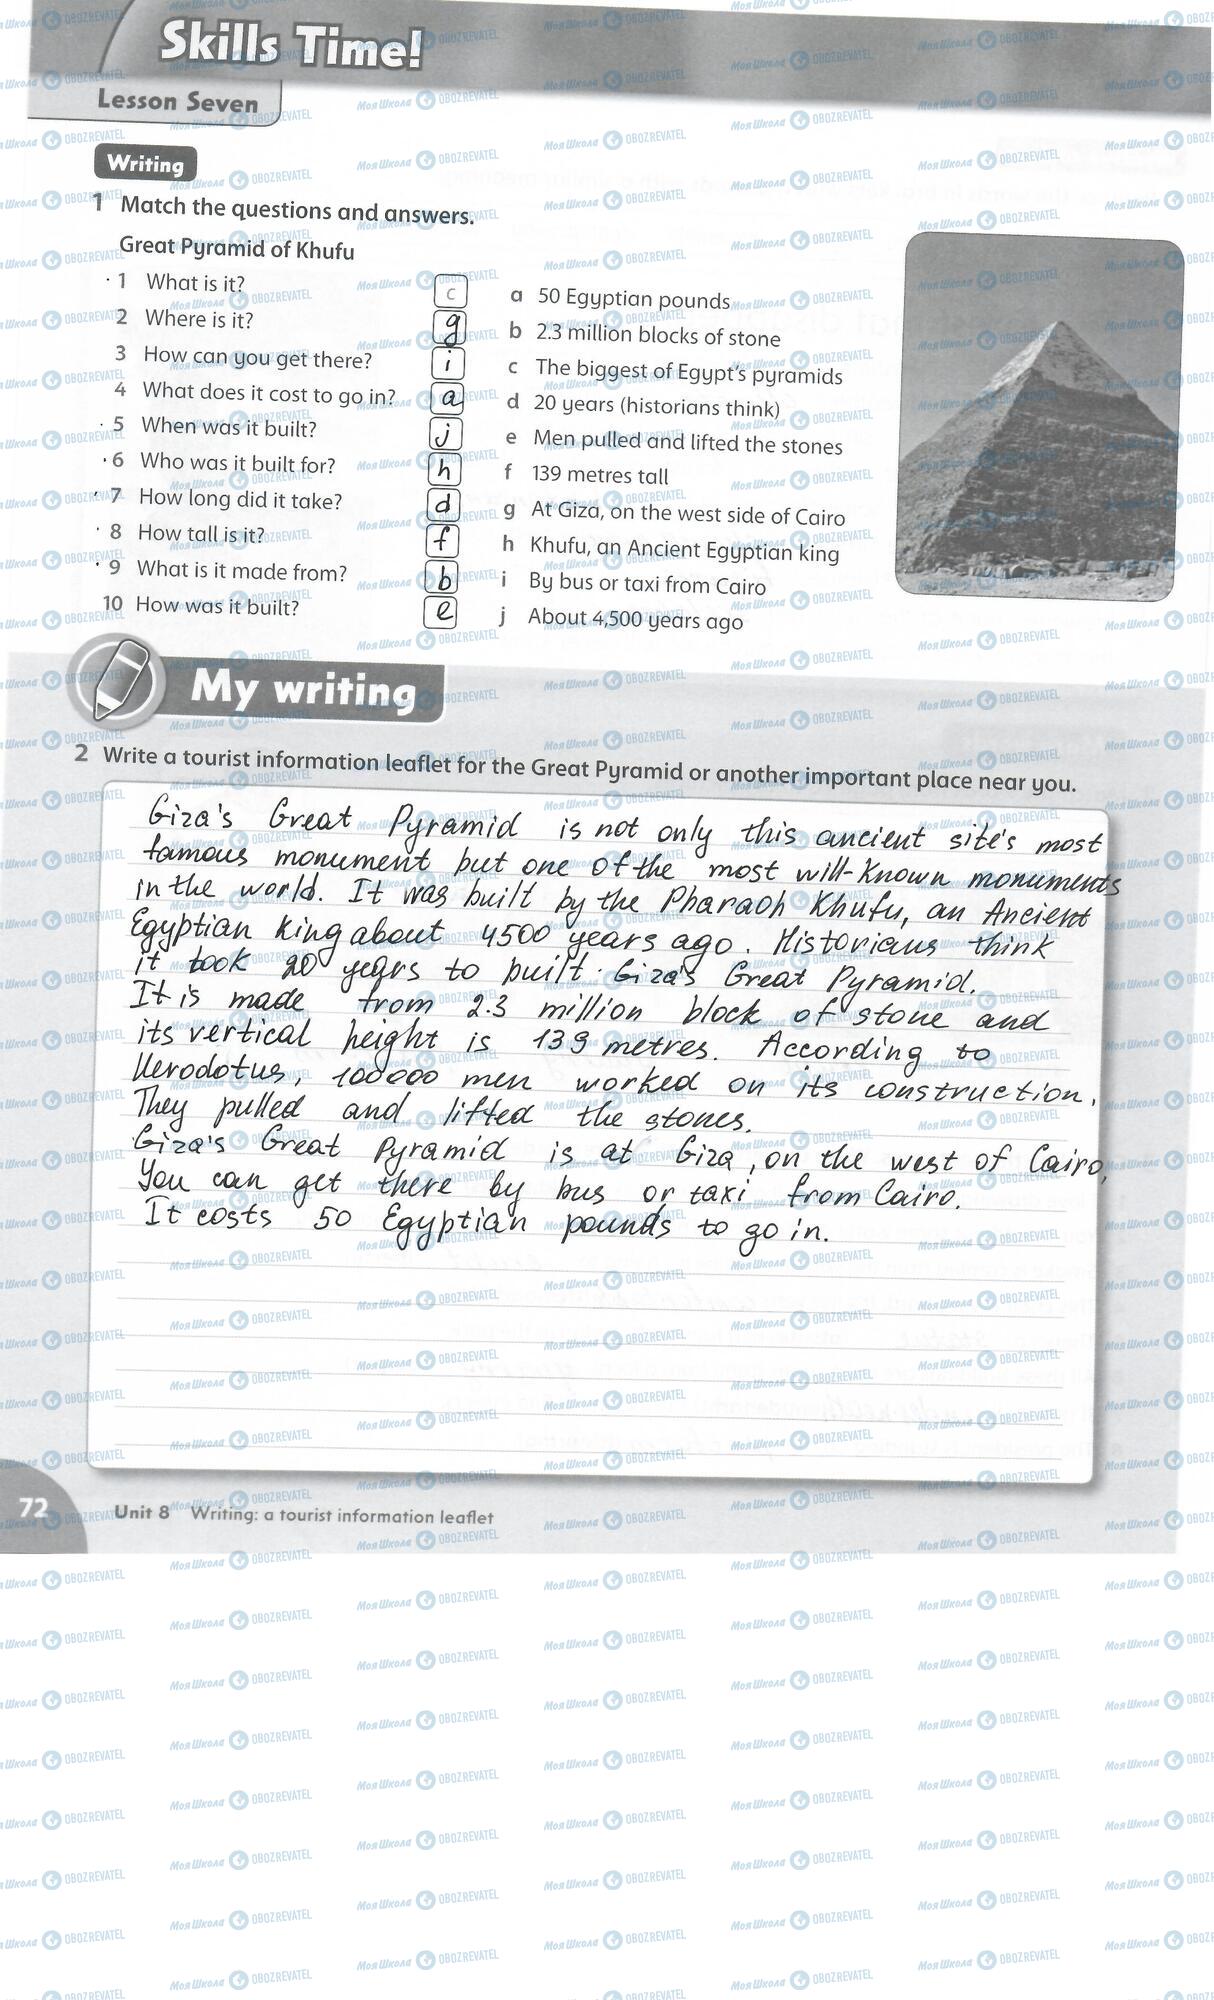 Skills Time!
Lesson Seven
Writing
1 Match the questions and answers.
Great Pyramid of Khufu
1 What is it? c
2 Where is it? g
3 How can you get there? i
4 What does it cost to go in? a
5 When was it built? j
6 Who was it built for? h
7 How long did it take? d
8 How tall is it? f
9 What is it made from? b
10 How was it built? e
a 50 Egyptian pounds
b 2.3 million blocks of stone
c The biggest of Egypt's pyramids
d 20 years (historians think)
e Men pulled and lifted the stones
f 139 metres tall
g At Giza, on the west side of Cairo
h Khufu, an Ancient Egyptian king
i By bus or taxi from Cairo
j About 4,500 years ago
My writing
2 Write a tourist information leaflet for the Great Pyramid or another important place near you.
Giza's Great Pyramid is not only this ancient site's most
famous monument but one of the most will-known monuments
in the world. It was built by the Pharaoh Khufu, an Ancient
Egyptian king about 4500 years ago. Historians think
it took 20 years to built Giza's Great Pyramid.
It is made from 2.3 million block of stone and
its vertical height is 139 metres. According to
Herodotus, 100000 men worked on its construction.
They pulled and lifted the stones.
Giza's Great Pyramid is at Giza, on the west of Cairo,
You can get there by bus or taxi from Cairo.
It costs 50 Egyptian pounds to go in.
72 Unit 8 Writing: a tourist information leaflet
Моя Школа OBOZREVATEL